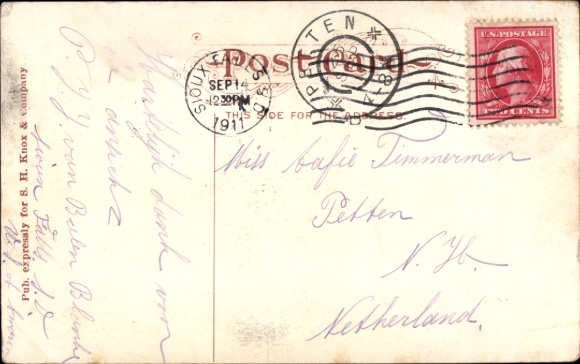 Post card
THIS SIDE FOR THE ADDRESS
SIOUX FALLS S.D.
SEP 14
12 30 PM
1911
PETTEN
U.S. POSTAGE
TWO CENTS
Hartelijk dank voor
u ansicht
van Balen Blanken
Sioux Falls S. D.
Miss Aafie Timmerman
Petten
N. H.
Netherland.
Pub. expressly for S. H. Knox & Company